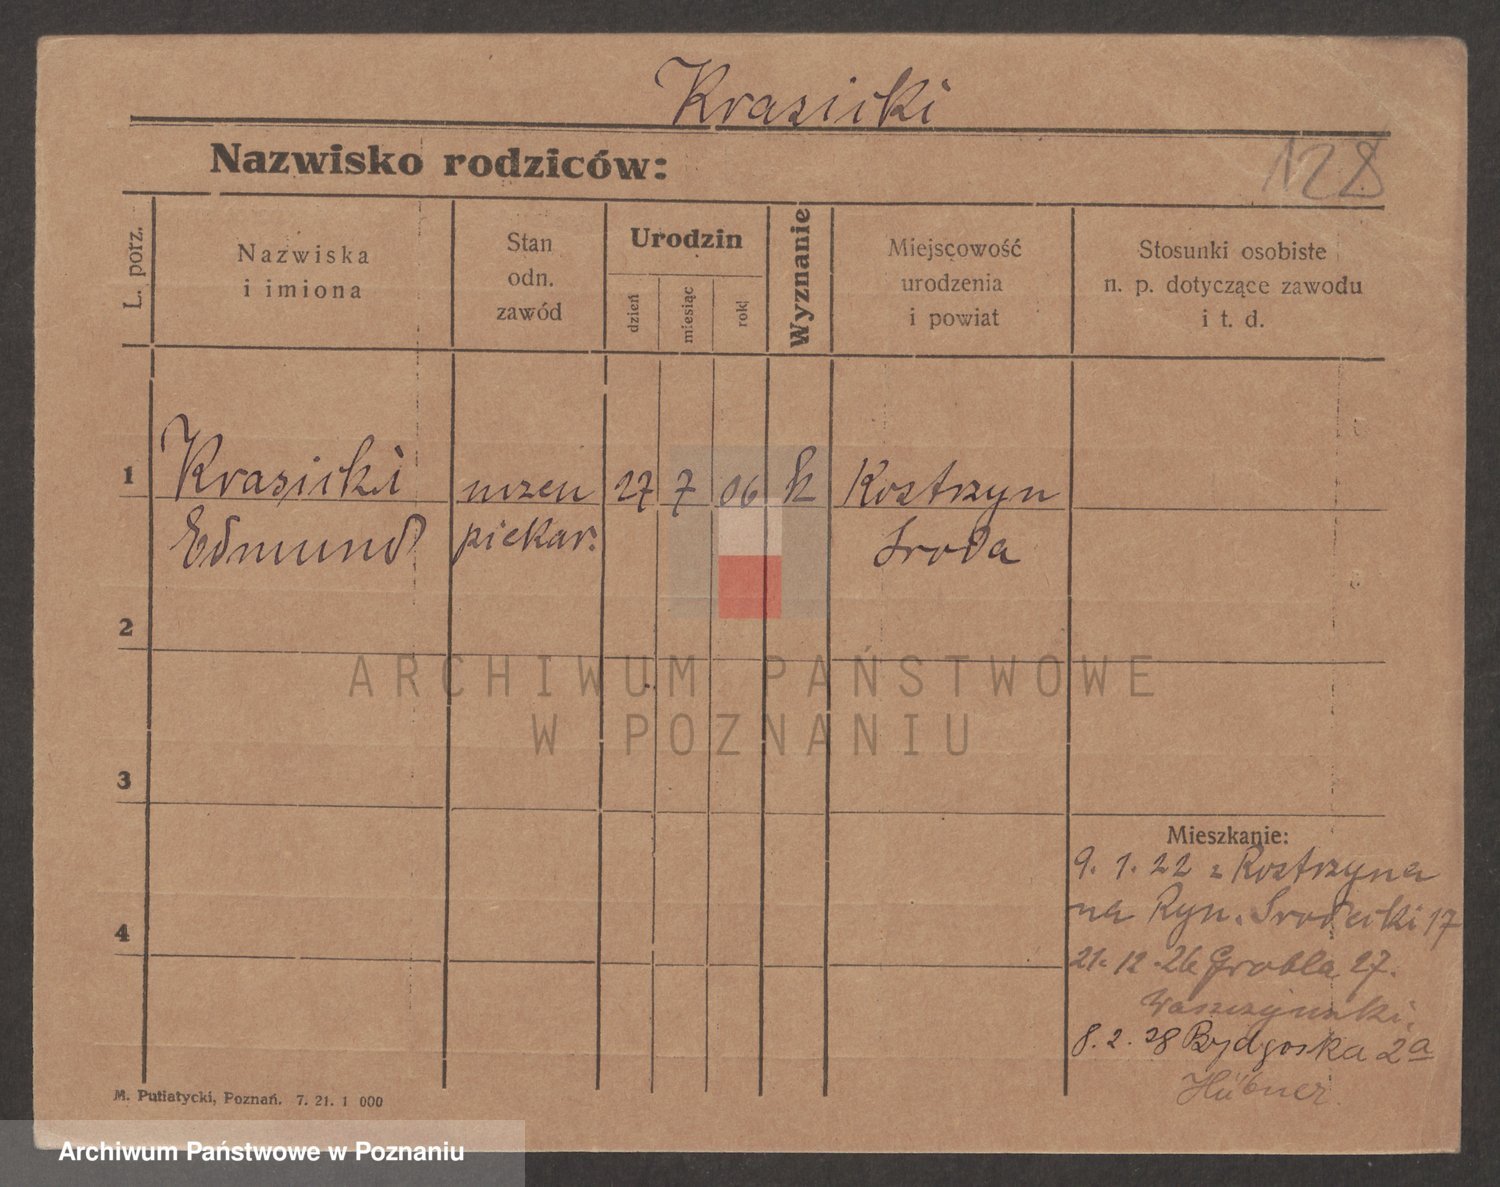 Krasicki
Nazwisko rodziców:
128
L. porz.
Nazwiska
i imiona
Stan
odn.
zawód
Urodzin
dzień
miesiąc
rok
Wyznanie
Miejscowość
urodzenia
i powiat
Stosunki osobiste
n. p. dotyczące zawodu
i t. d.
1
Krasicki
uczeń
27
7
06
k
Kostrzyn
Edmund
piekar.
Środa
2
ARCHIWUM PAŃSTWOWE
W POZNANIU
3
Mieszkanie:
9. 1. 22 z Kostrzyna
na Ryn. Srodecki 17
4
21. 12. 26 Grobla 27.
8. 2. 28 Bydgoska 2a
Hübner.
M. Putiatycki, Poznań. 7. 21. 1 000
Archiwum Państwowe w Poznaniu